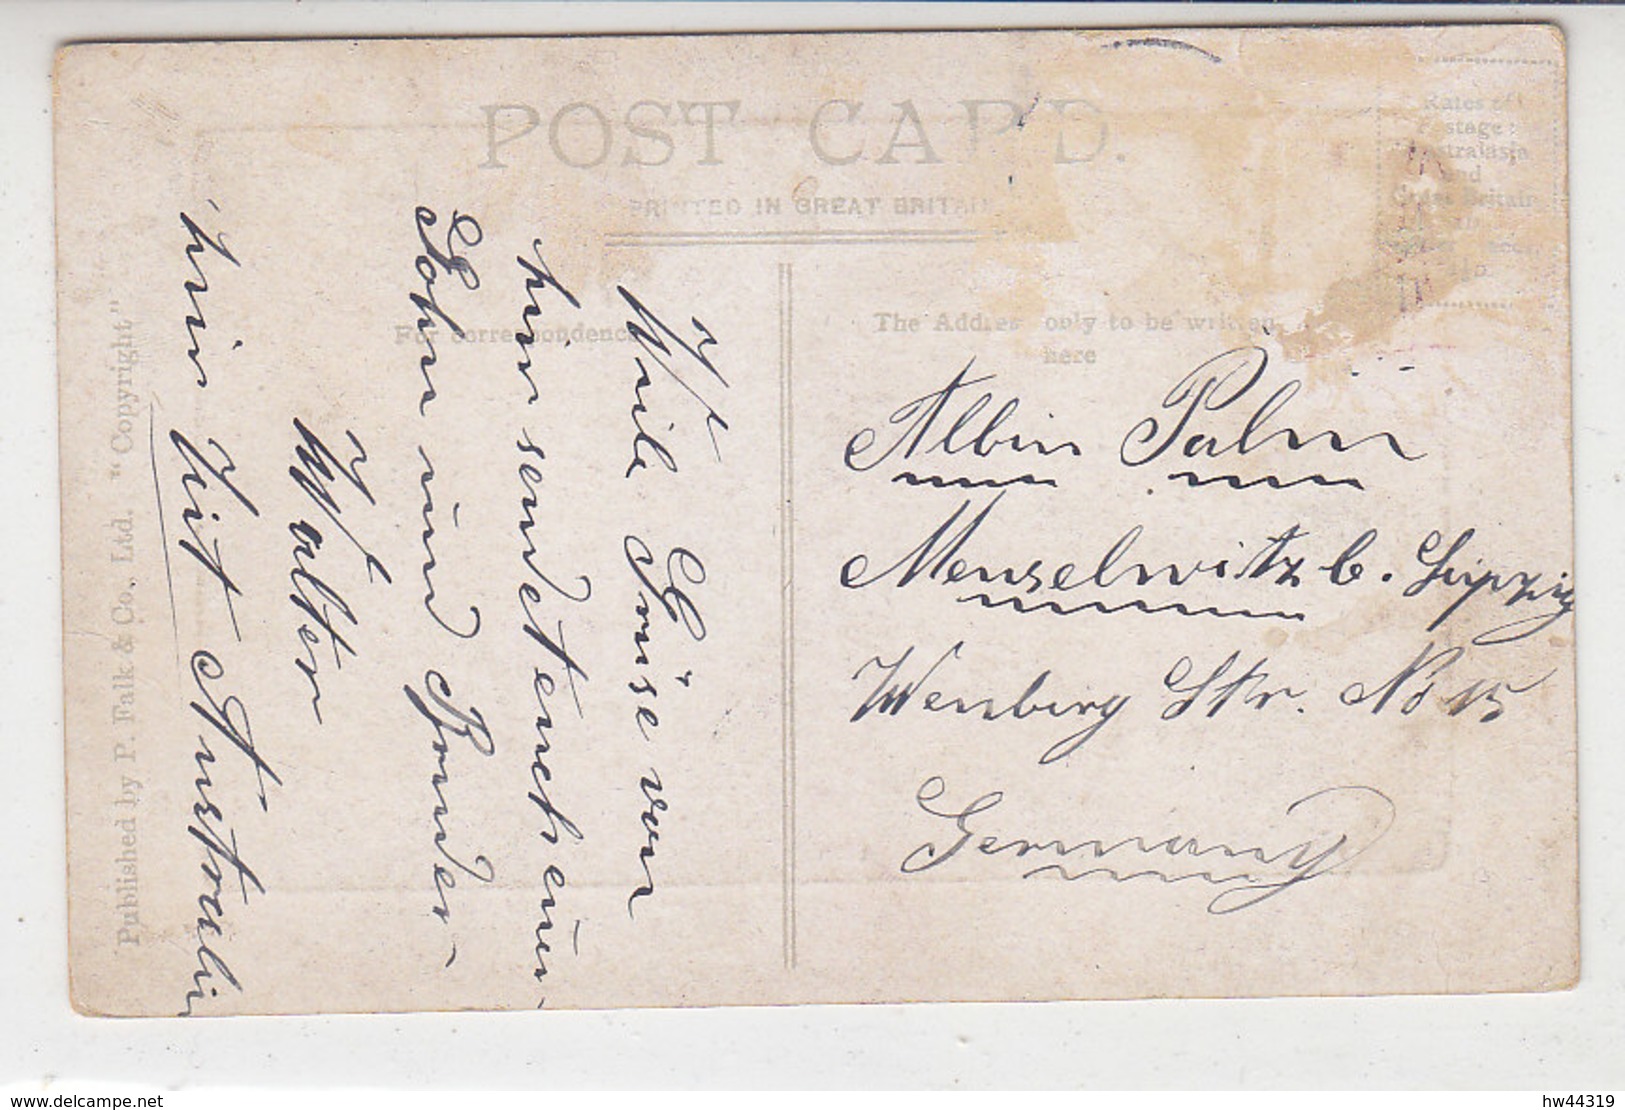 POST CARD.
PRINTED IN GREAT BRITAIN
For correspondence
The Address only to be written
here
Rates of
Postage:
Australasia
and
Great Britain
Published by P. Falk & Co., Ltd. "Copyright"
Viele Grüse von
hir sendet euch euer
Sohn und Bruder
Walter
hir Australi
Albin Palm
Menselwitz b. Leipzig
Wenberg Str. No 15
Germany
www.delcampe.net
hw44319